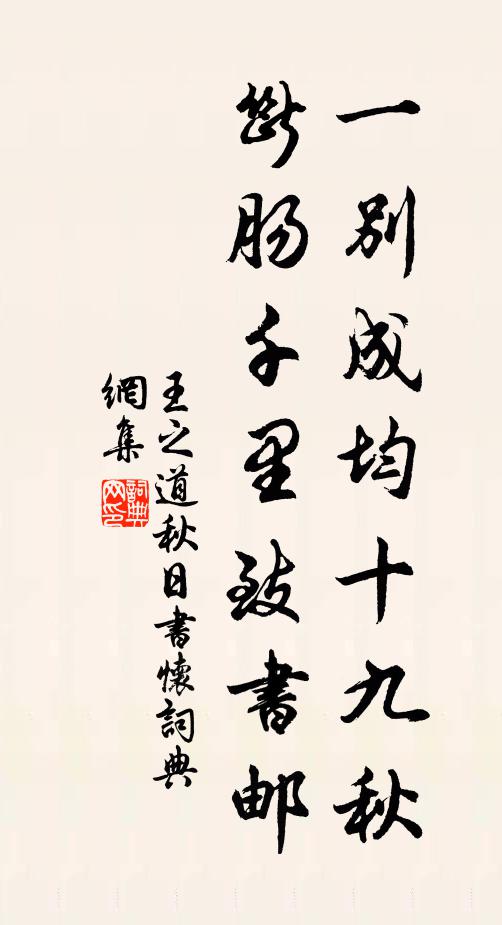 一别成均十九秋
断肠千里致书邮
王之道秋日書懷詞典
網集
詞典
网印